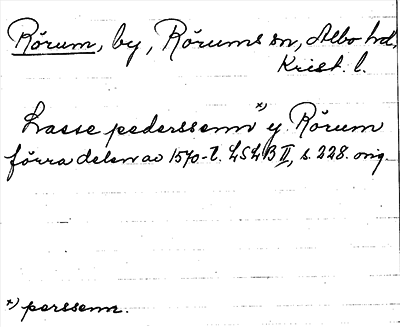 Rörum, by, Rörums sn, Albo hd,
Krist. l.
Lasse pederssenn *) y. Rörum
förra delen av 1570-t. LSLB II, s. 228. orig.
*) perssenn.